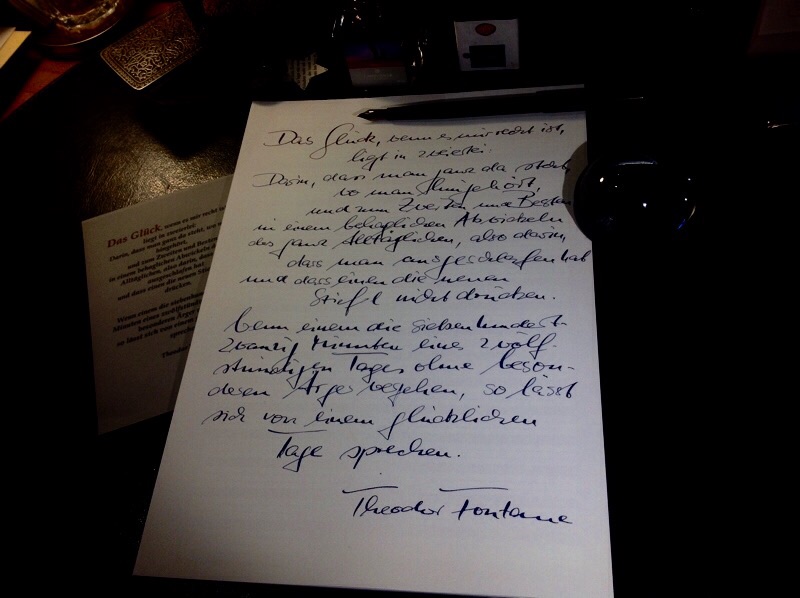 Das Glück, wenn es mir recht ist,
liegt in zweierlei.
Darin, dass man ganz da steht,
wo man hingehört,
und zum Zweiten und Besten
in einem behaglichen Abwickeln
des ganz Alltäglichen, also darin,
dass man ausgeschlafen hat
und dass einen die neuen
Stiefel nicht drücken.
Wenn einem die siebenhundert-
zwanzig Minuten eines zwölf-
stündigen Tages ohne beson-
deren Ärger vergehen, so lässt
sich von einem glücklichen
Tage sprechen.
Theodor Fontane
Das Glück, wenn es mir recht
liegt in zweierlei.
Darin, dass man ganz da steht, wo
hingehört,
und zum Zweiten und Besten
in einem behaglichen Abwickeln
Alltäglichen, also darin, dass
ausgeschlafen hat
und dass einen die neuen
drücken.
Wenn einem die siebenhundert
Minuten eines zwölfstündigen
besonderen Ärger
so lässt sich von einem
sprechen